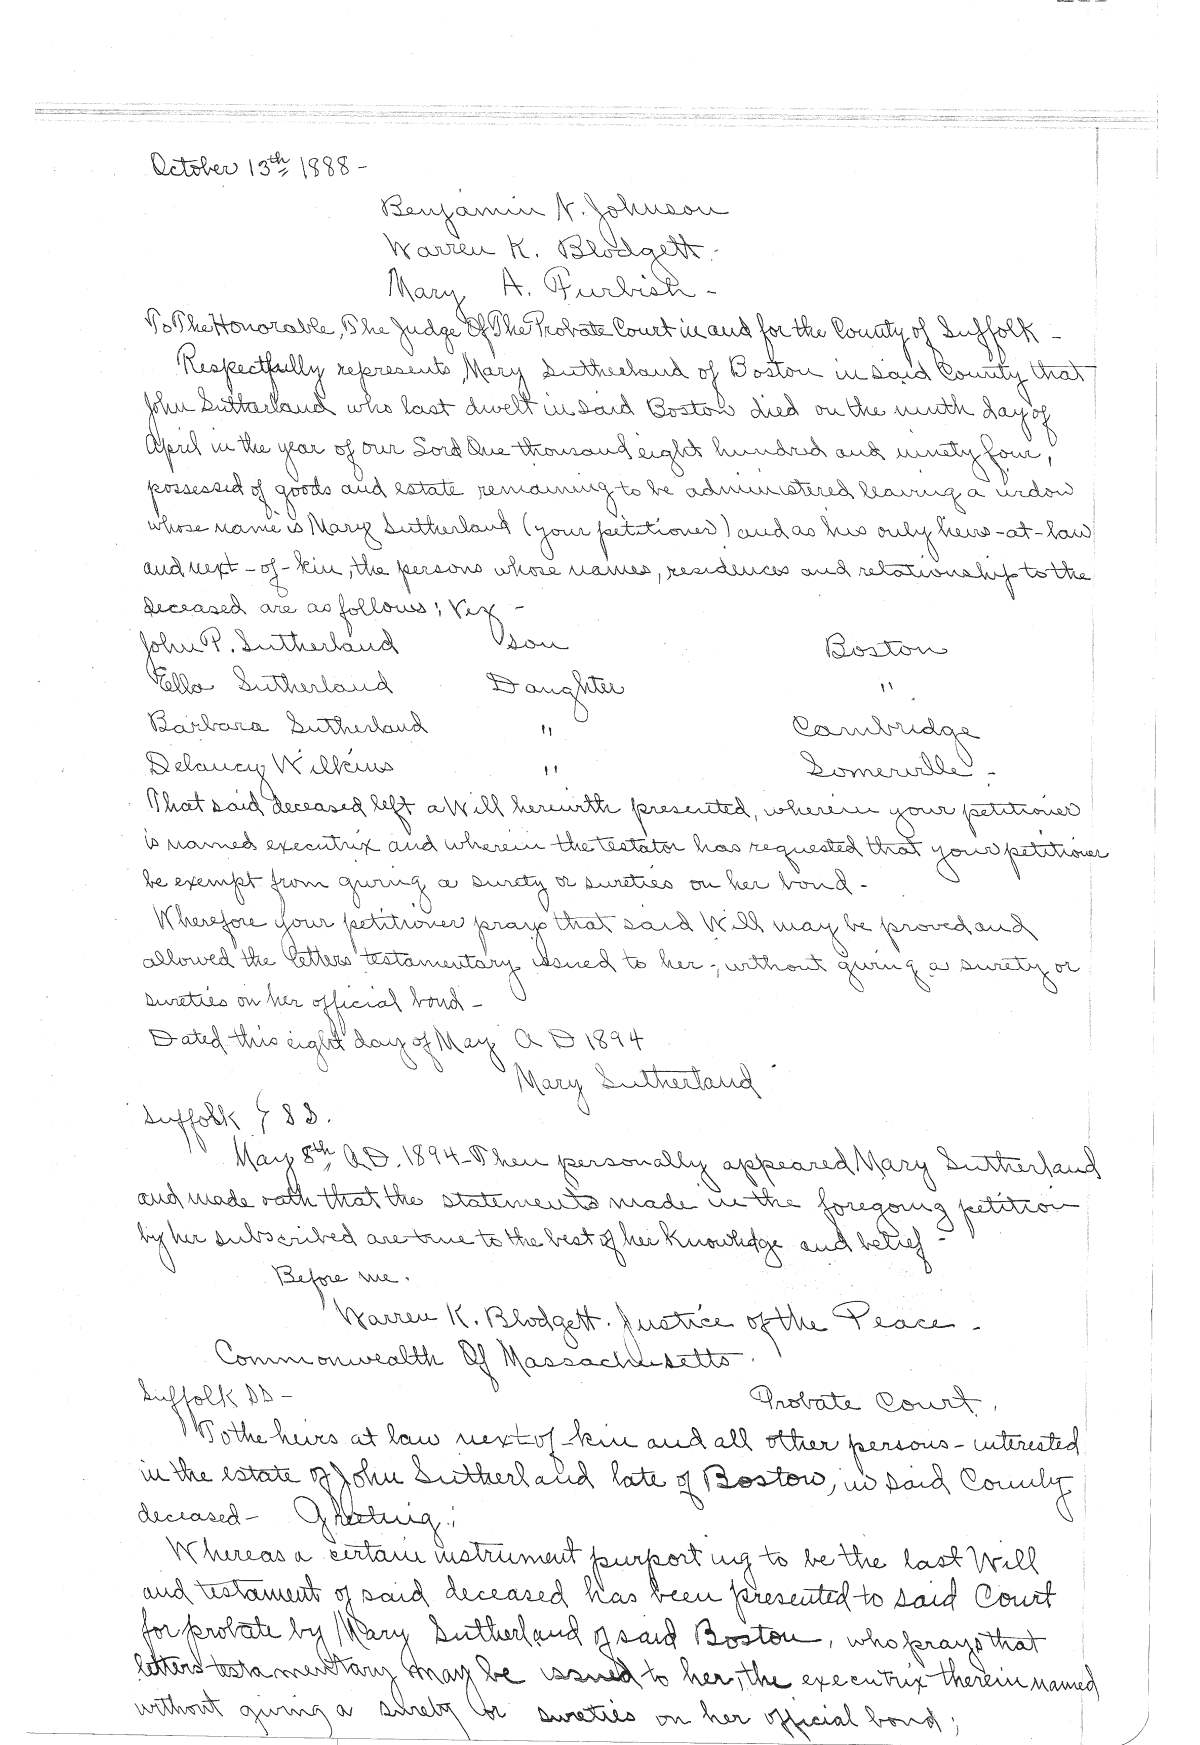 October 13th 1888-
Benjamin N. Johnson
Warren K. Blodgett.
Mary A. Furbish-
To The Honorable, The Judge Of The Probate Court in and for the County of Suffolk -
Respectfully represents, Mary Sutherland of Boston in said County that
John Sutherland who last dwelt in said Boston died on the ninth day of
April in the year of our Lord One thousand eight hundred and ninety four,
possessed of goods and estate remaining to be administered leaving a widow
whose name is Mary Sutherland (your petitioner) and as his only heirs-at-law
and next-of-kin, the persons whose names, residences and relationship to the
deceased are as follows; Viz -
John P. Sutherland son Boston
Ella Sutherland Daughter "
Barbara Sutherland " Cambridge
Delancy Wilkins " Somerville -
That said deceased left a Will herewith presented, wherein your petitioner
is named executrix and wherein the testator has requested that your petitioner
be exempt from giving a surety or sureties on her bond-
Wherefore your petitioner prays that said Will may be proved and
allowed the letters testamentary issued to her, without giving a surety or
sureties on her official bond-
Dated this eight day of May A D 1894
Mary Sutherland
Suffolk } SS.
May 8th A.D. 1894-Then personally appeared Mary Sutherland
and made oath that the statements made in the foregoing petition
by her subscribed are true to the best of her knowledge and belief-
Before me.
Warren K. Blodgett. Justice of the Peace -
Commonwealth Of Massachusetts.
Suffolk SS- Probate Court.
To the heirs at law next-of-kin and all other persons-interested
in the estate of John Sutherland late of Boston, in said County
deceased- Greeting;
Whereas a certain instrument purporting to be the last Will
and testament of said deceased has been presented to said Court
for probate by Mary Sutherland of said Boston, who prays that
letters testamentary may be issued to her, the executrix therein named
without giving a surety or sureties on her official bond;